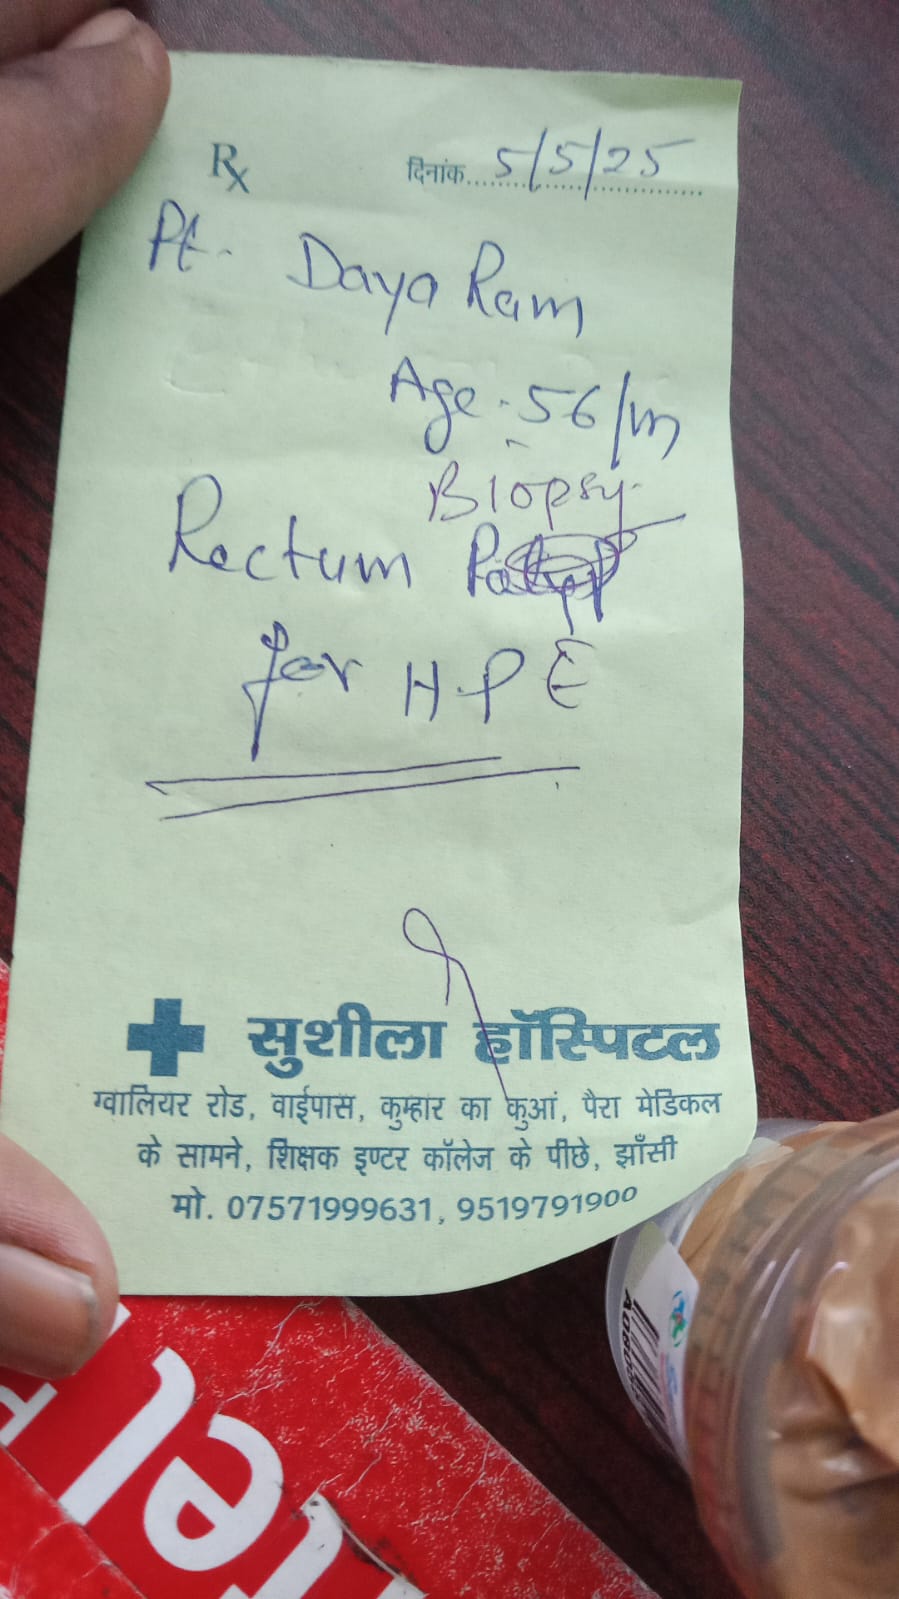 Rx
दिनांक.....5/5/25
Pt. Daya Ram
Age. 56/m
Biopsy.
Rectum
for H.P.E
सुशीला हॉस्पिटल
ग्वालियर रोड, वाईपास, कुम्हार का कुआं, पैरा मेडिकल
के सामने, शिक्षक इण्टर कॉलेज के पीछे, झाँसी
मो. 07571999631, 9519791900